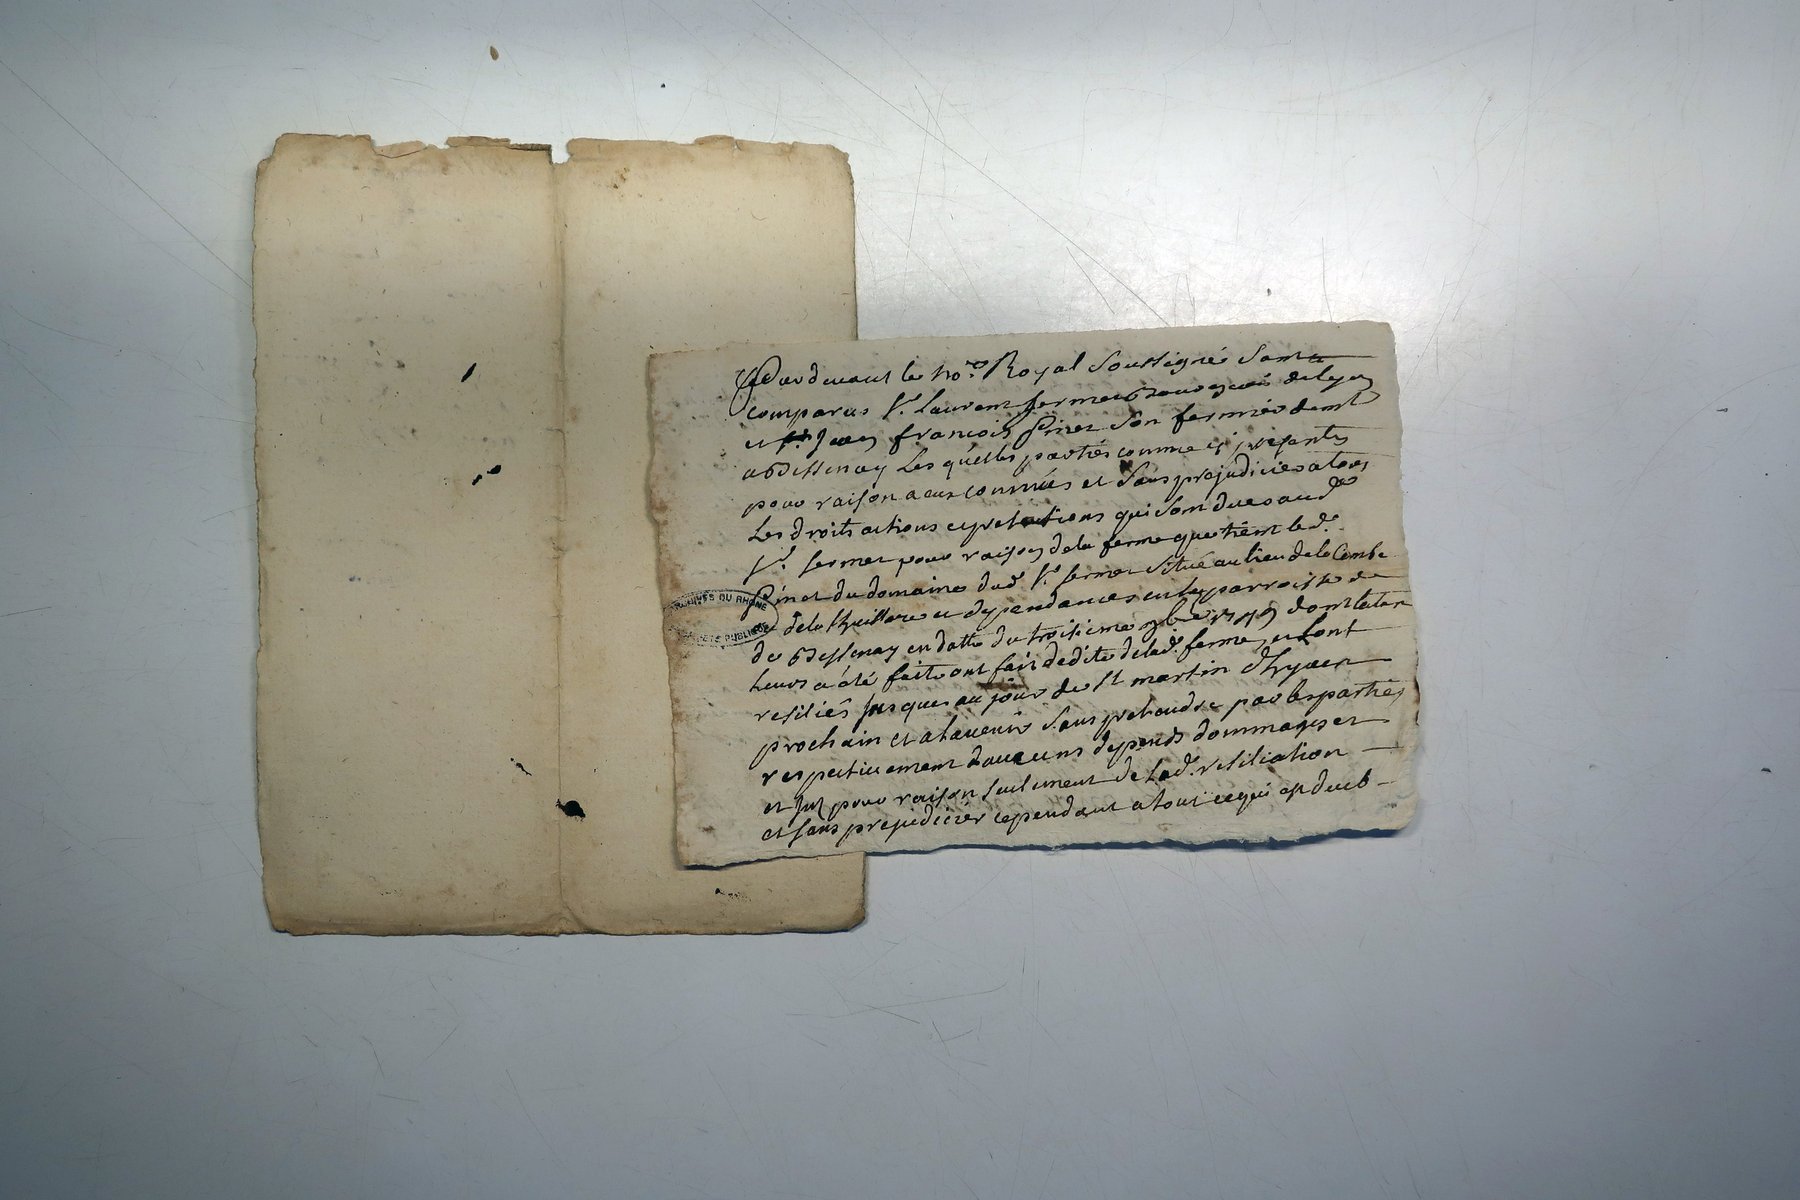 Pardevant le no.re Royal Soussigné Sont
comparus Sr. Laurent fermet Bourgeois de Lyon
et Jean françois Pinet Son fermier demt
a Bessenay Lesquelles parties comme cy presentes
pour raison a eux connues et Sans prejudicier a tous
Les droits actions et pretentions qui Sont dues aud
Sr. fermet pour raison de la ferme que tient led.
Pinet du domaine dud Sr. fermet Situé au lieu de la Combe
de la et dependances en la parroisse de
de Bessenay en datte du troisieme 9bre dont lecture
leurs a été faite ont fait dedite de lad. ferme, et font
resiliés Jusques au jour de St martin d'hyver
prochain et a lavenir Sans pretendre par les parties
respectivement d'aucuns depends dommages et
et pour raison Seulement de lad. resiliation
et Sans prejudicier cependant a tout ce qui est dueb
ARCHIVES DU RHONE